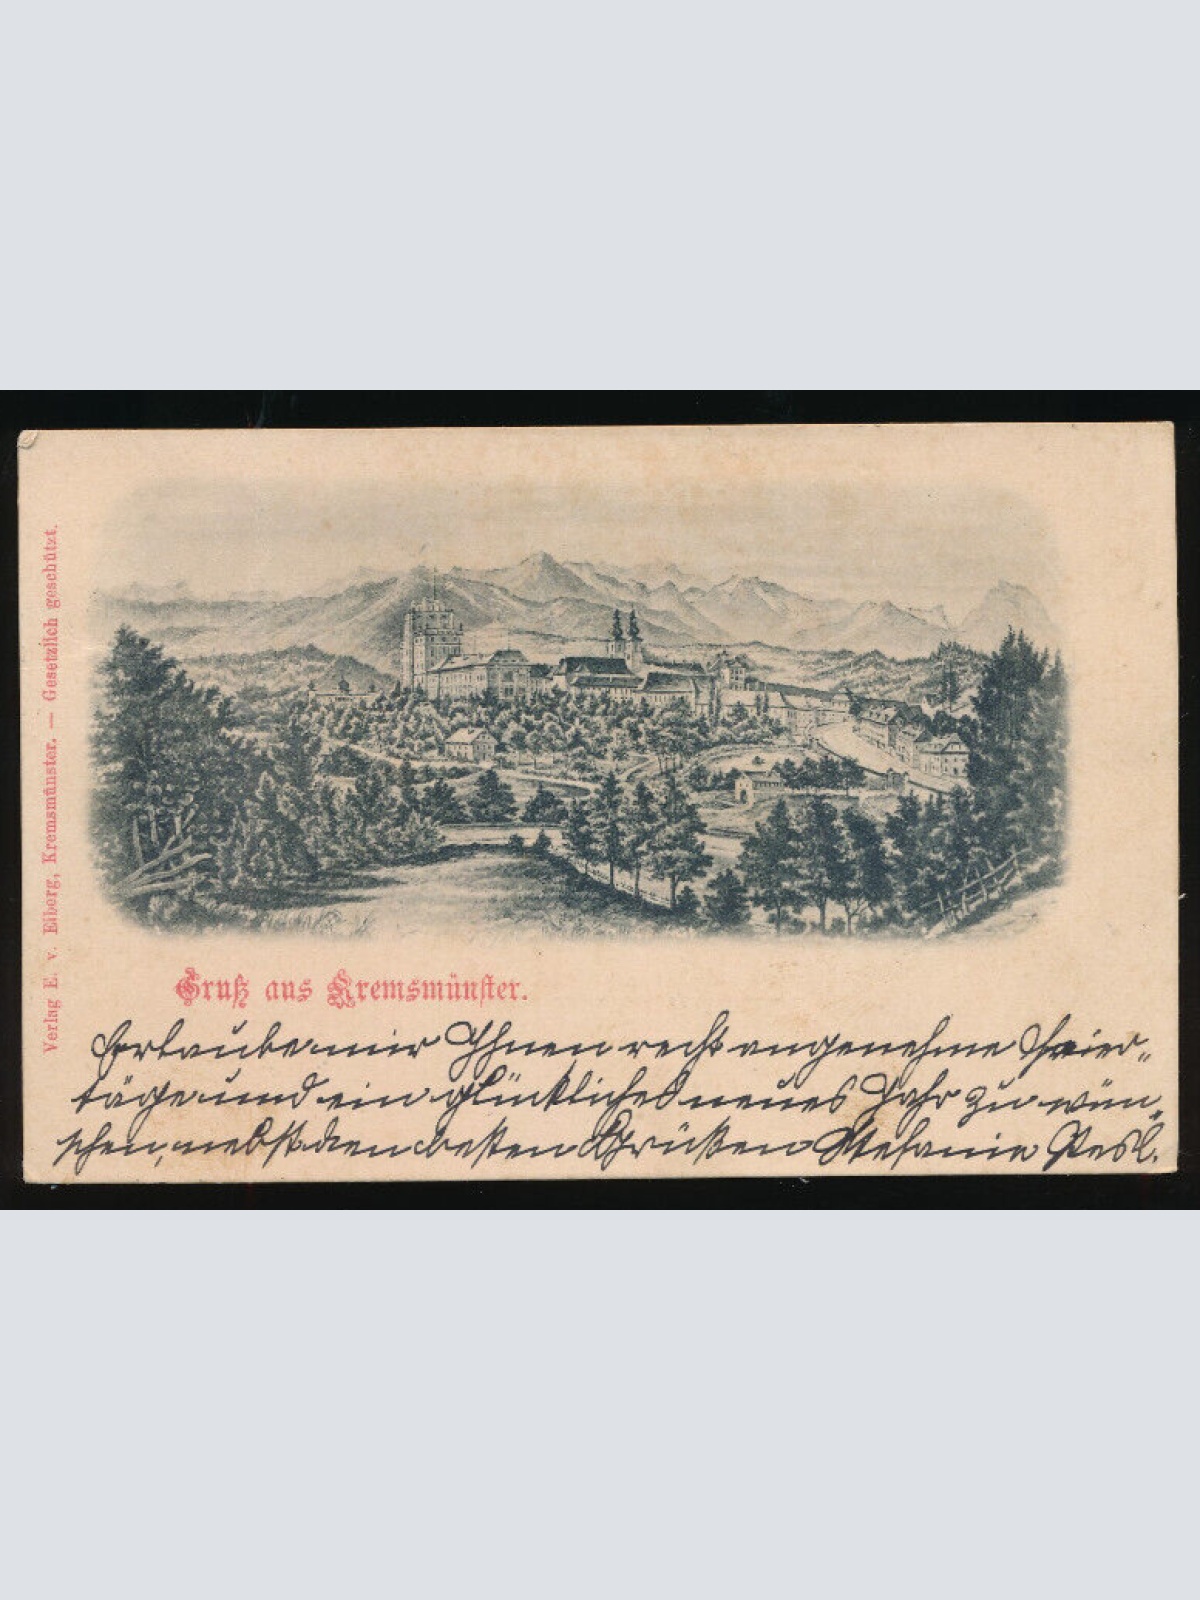 Verlag E. v. Eiberg, Kremsmünster. — Gesetzlich geschützt.
Gruß aus Kremsmünster.
Erlaube mir Ihnen recht angenehme Feier„
täge und ein glückliches neues Jahr zu wün„
schen, nebst den besten Grüßen Stefanie Resl.